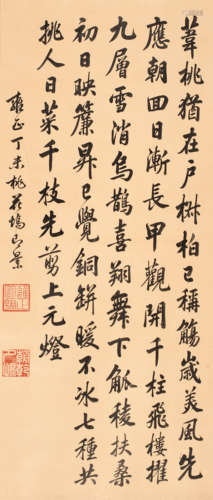 葦桃猶在戶椒柏已稱觴歲美風先
應朝回日漸長甲觀開千柱飛樓擢
九層雪消烏鵲喜翔舞下觚稜扶桑
初日映簾昇已覺銅缾暖不冰七種共
挑人日菜千枝先剪上元燈
雍正丁未桃花塢即景